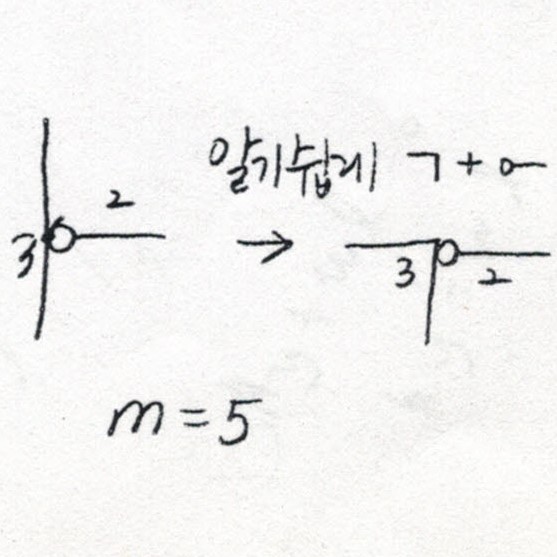 알기쉽게 ㄱ+ㅇ-
2
3
→
3
2
m=5